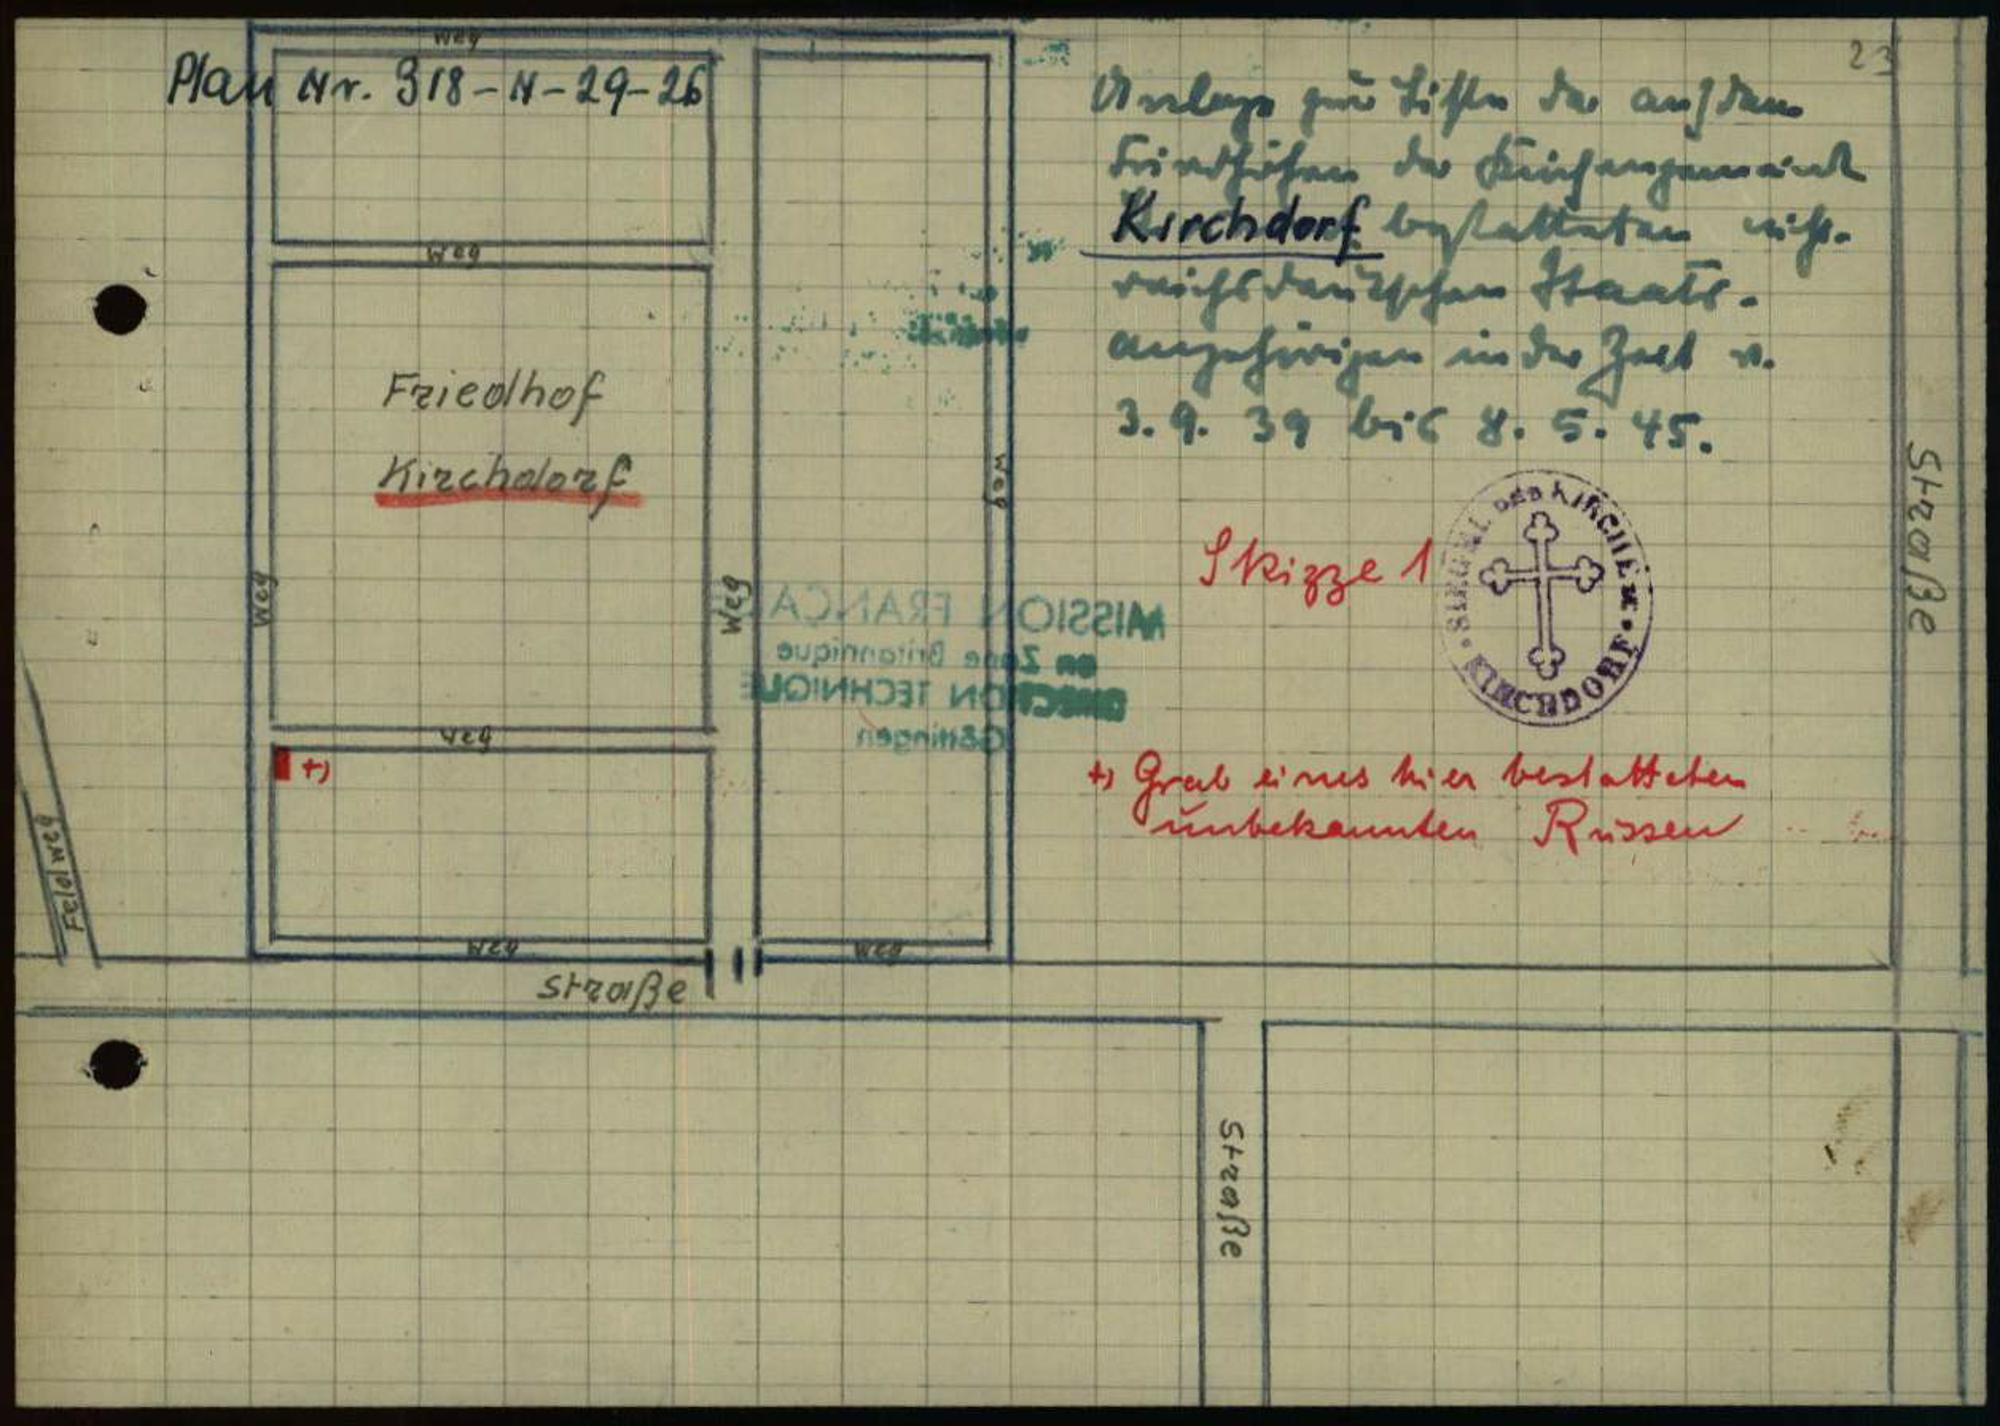 23
Weg
Plan Nr. 318-N-29-26
Anlage zur Liste der auf dem
Friedhöfen der Kirchengemeinde
Kirchdorf bestatteten nicht-
reichsdeutschen Staats-
angehörigen in der Zeit v.
3. 9. 39 bis 8. 5. 45.
Weg
Friedhof
Kirchdorf
Weg
Weg
Weg
Straße
Skizze 1
SIEGEL DER KIRCHE ZU
KIRCHDORF
MISSION FRANÇA
en Zone Britannique
DIRECTION TECHNIQUE
Göttingen
Weg
+)
+) Grab eines hier bestatteten
unbekannten Russen
Feldweg
Weg
Weg
Straße
Straße